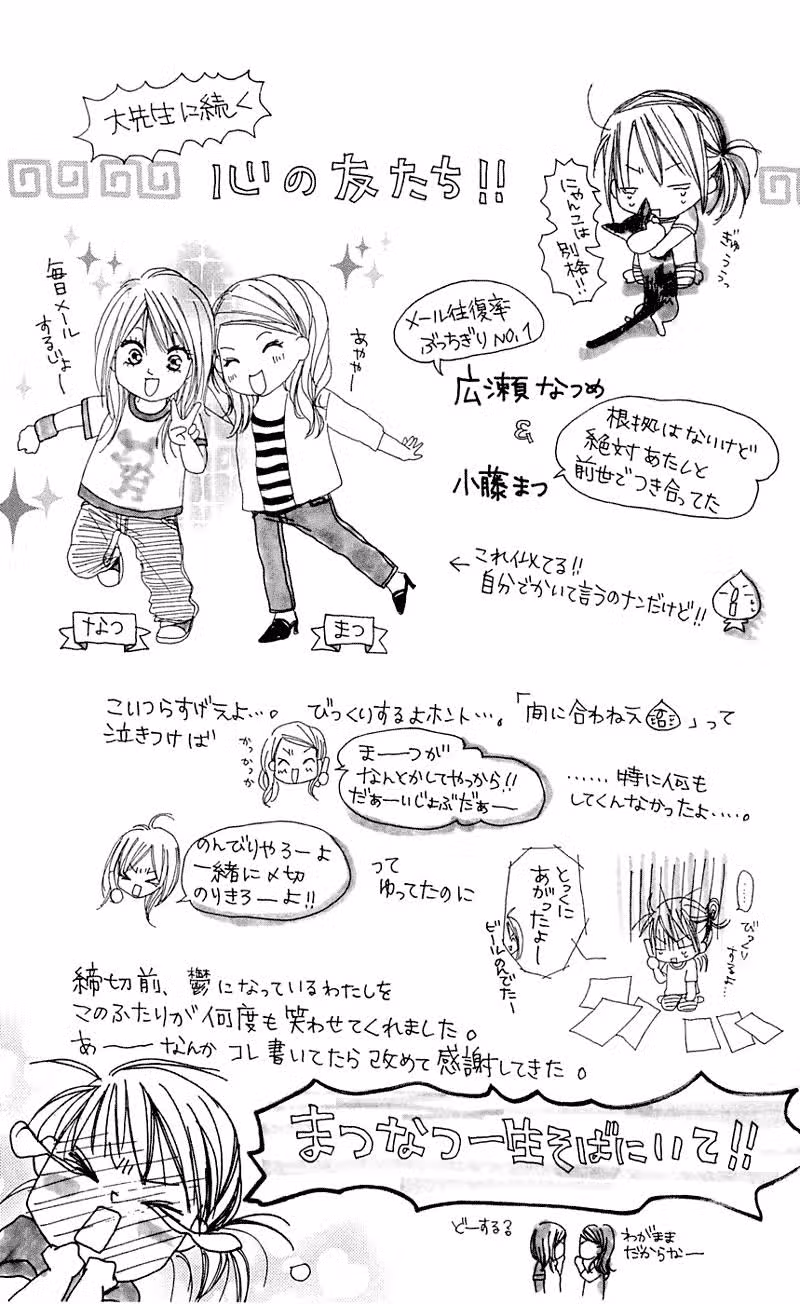 大先生に続く
心の友たち!!
にゃんこは
別格!!
ぎゅううっ
毎日メール
するじょー
あややー
メール往復率
ぶっちぎりNO.1
広瀬なつめ
&
小藤まつ
根拠はないけど
絶対あたしと
前世でつき合ってた
←これ似てる!!
自分でかいて言うのナンだけど!!
なつ
まつ
こいつらすげえよ…。びっくりするよホント…。「間に合わねえ」って
泣きつけば
かっかっか
まーーつが
なんとかしてやっから!!
だぁーいじょぶだぁー
……時に何も
してくんなかったよ…。
のんびりやろーよ
一緒に〆切
のりきろーよ!!
って
ゆってたのに
とっくに
あがったよー
ビールのんでたー
…
びっくり
するよ…
締切前、鬱になっているわたしを
マのふたりが何度も笑わせてくれました。
あーーなんかコレ書いてたら改めて感謝してきた。
まつなつ一生そばにいて!!
どーする
わがまま
だからなー